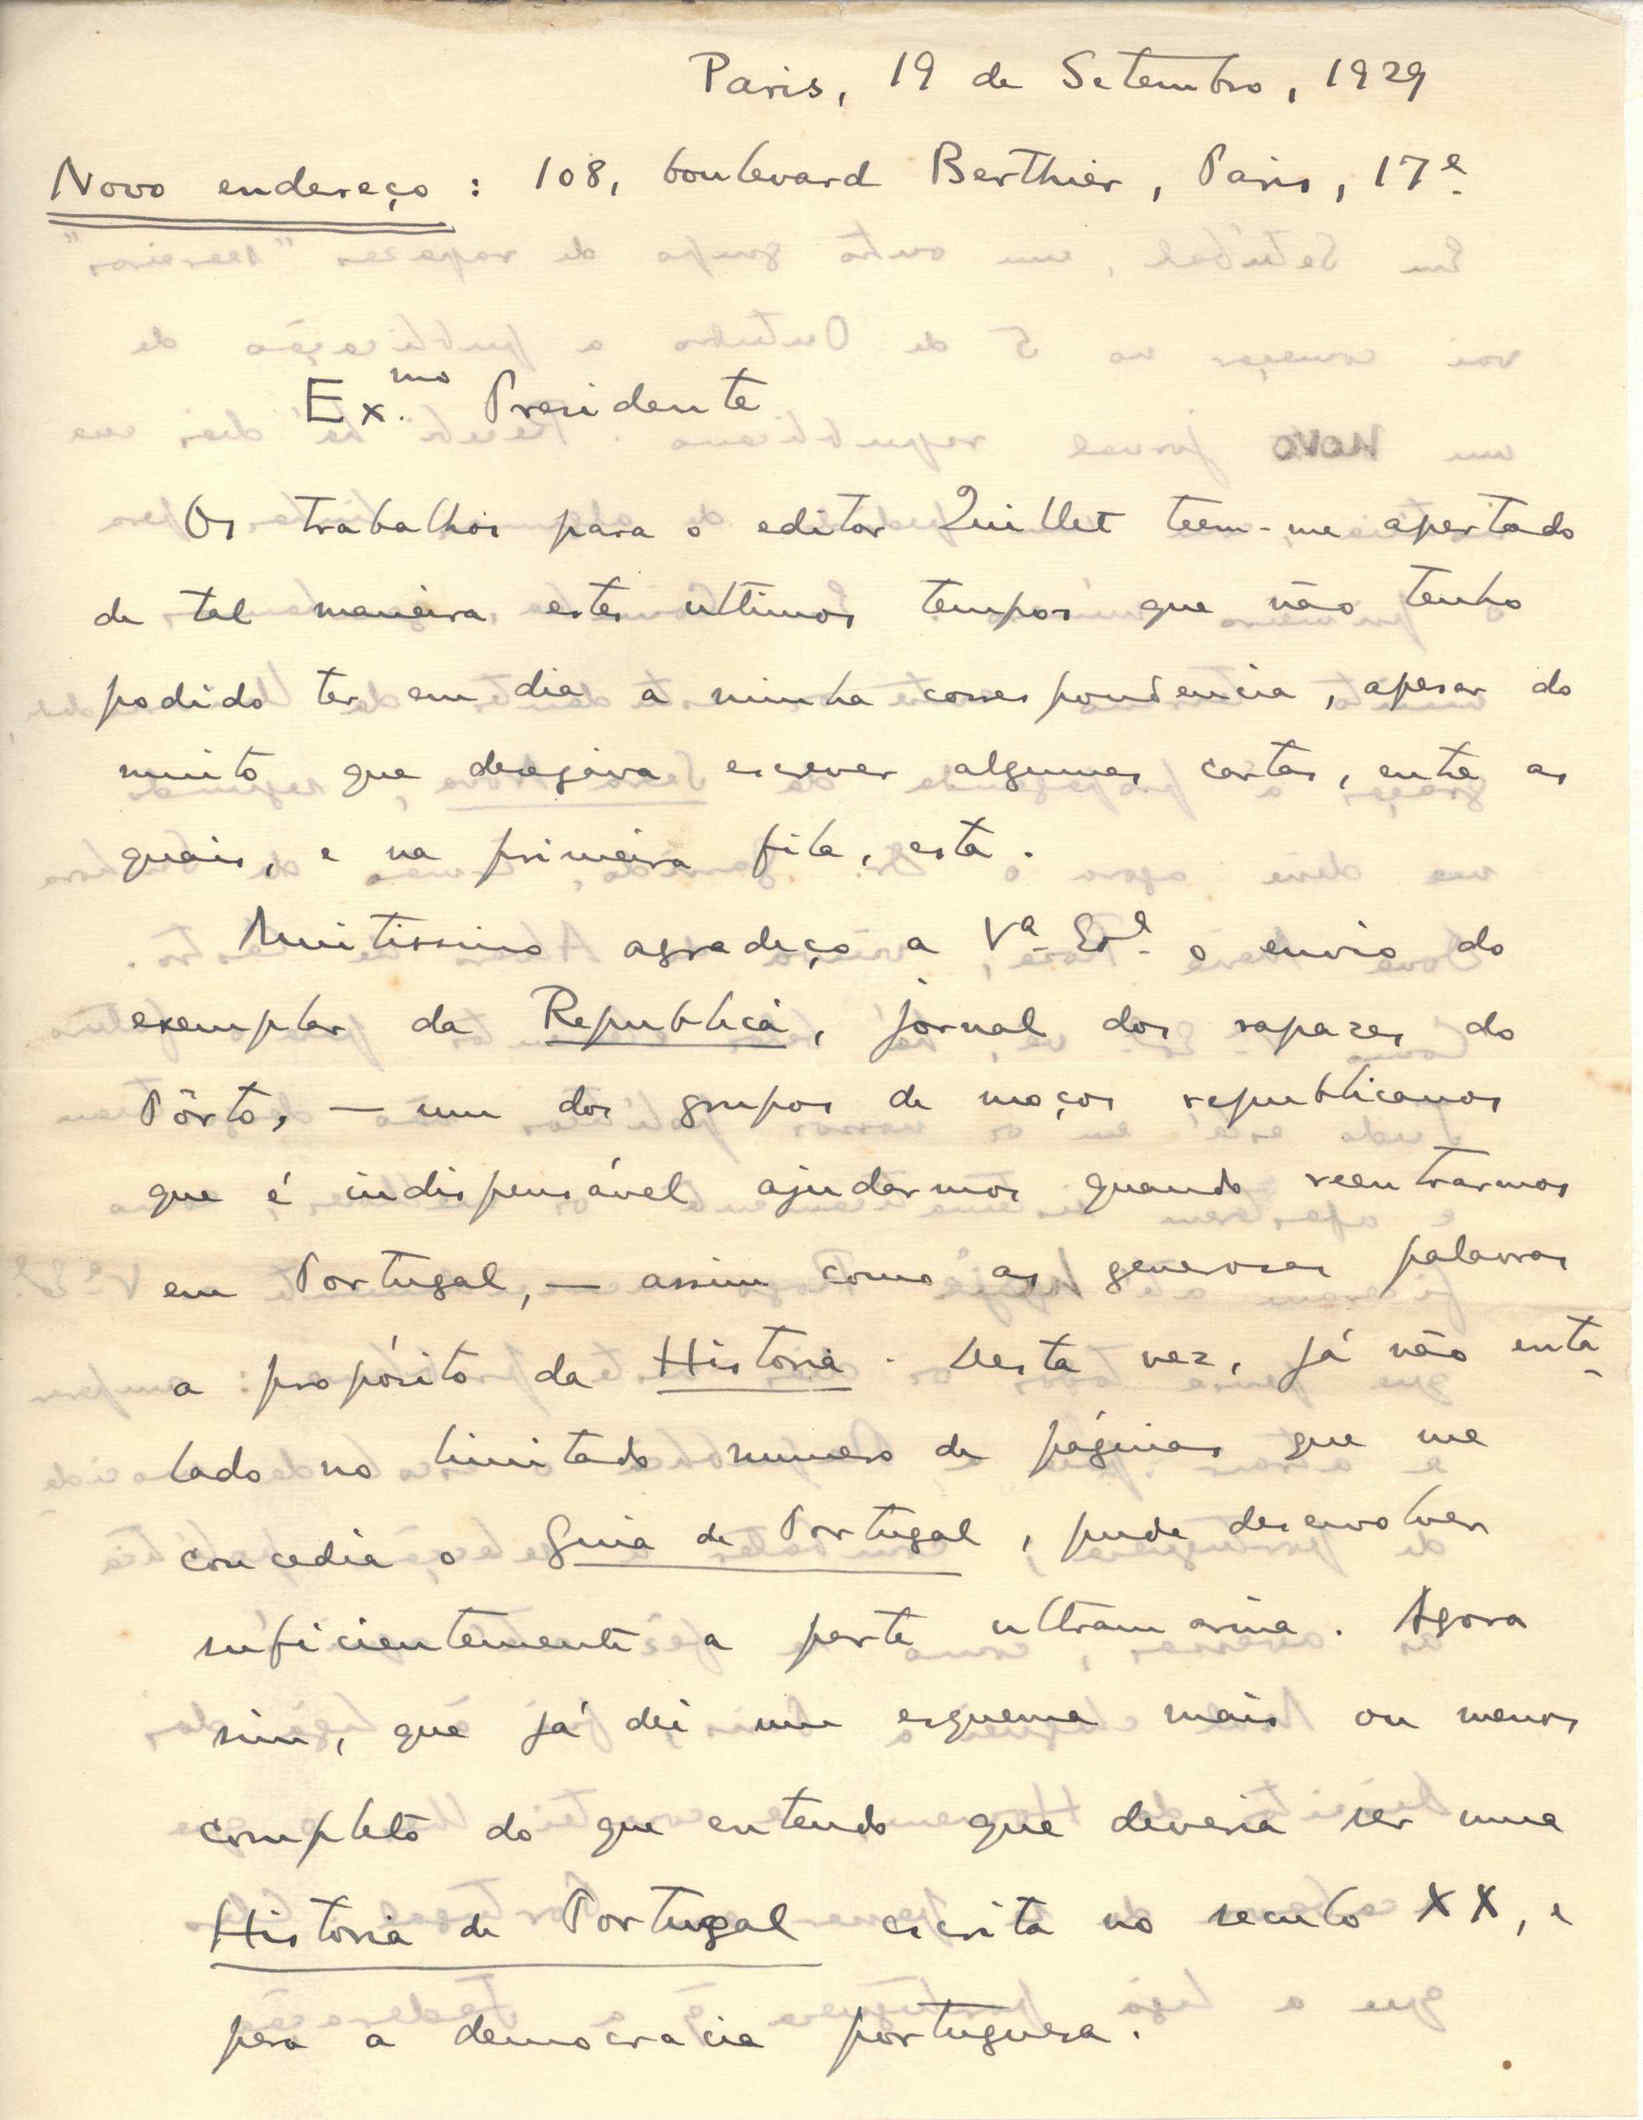 Paris, 19 de Setembro, 1929
Novo endereço : 108, boulevard Berthier, Paris, 17e.
Ex.mo Presidente
Os trabalhos para o editor Quillet teem-me apertado
de tal maneira estes ultimos tempos que não tenho
podido ter em dia a minha correspondencia, apesar do
muito que desejava escrever algumas cartas, entre as
quais, e na primeira fila, esta.
Muitissimo agradeço a Va. Exa. o envio do
exemplar da Republica, jornal dos rapazes do
Pôrto, — um dos grupos de moços republicanos
que é indispensável ajudarmos quando reentrarmos
em Portugal, — assim como as generosas palavras
a propósito da Historia. Desta vez, já não enta-
lado no limitado numero de páginas que me
concedia o Guia de Portugal, pude desenvolver
suficientemente a parte ultramarina. Agora
sim, que já dei um esquema mais ou menos
completo do que entendo que deveria ser uma
Historia de Portugal escrita no seculo XX, e
para a democracia portuguesa.